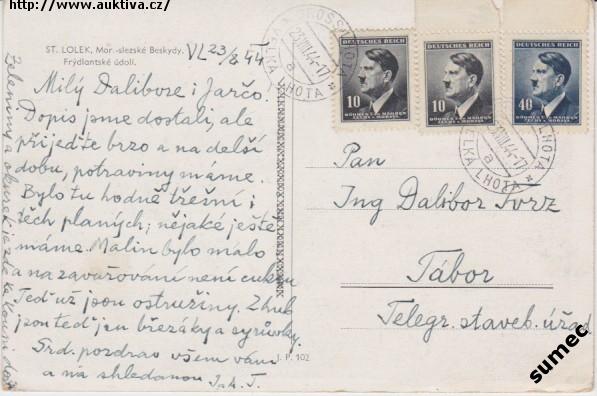 http://www.auktiva.cz/
ST. LOLEK, Mor.-slezské Beskydy.
Frýdlantské údolí.
VL 23/8 44
Milý Dalibore i Jarčo.
Dopis jsme dostali, ale
přijeďte brzo a na delší
dobu, potraviny máme.
Bylo tu hodně třešní i
těch planých; nějaké ještě
máme. Malin bylo málo
a na zavařování není cukru
Teď už jsou ostružiny. Z hub
jsou teď jen březáky a syrůvky.
Srd. pozdrav všem vám
a na shledanou
Zeleniny a okurek je zde
J. P. 102
GROSS
23.VIII.44-17
a
VELKÁ LHOTA
DEUTSCHES REICH
10
BÖHMEN U. MÄHREN
ČECHY A MORAVA
DEUTSCHES REICH
10
BÖHMEN U. MÄHREN
ČECHY A MORAVA
DEUTSCHES REICH
40
BÖHMEN U. MÄHREN
ČECHY A MORAVA
VIII.44-17
a
VELKÁ LHOTA
Pan
Ing Dalibor
Tábor
Telegr. staveb. úřad
sumec